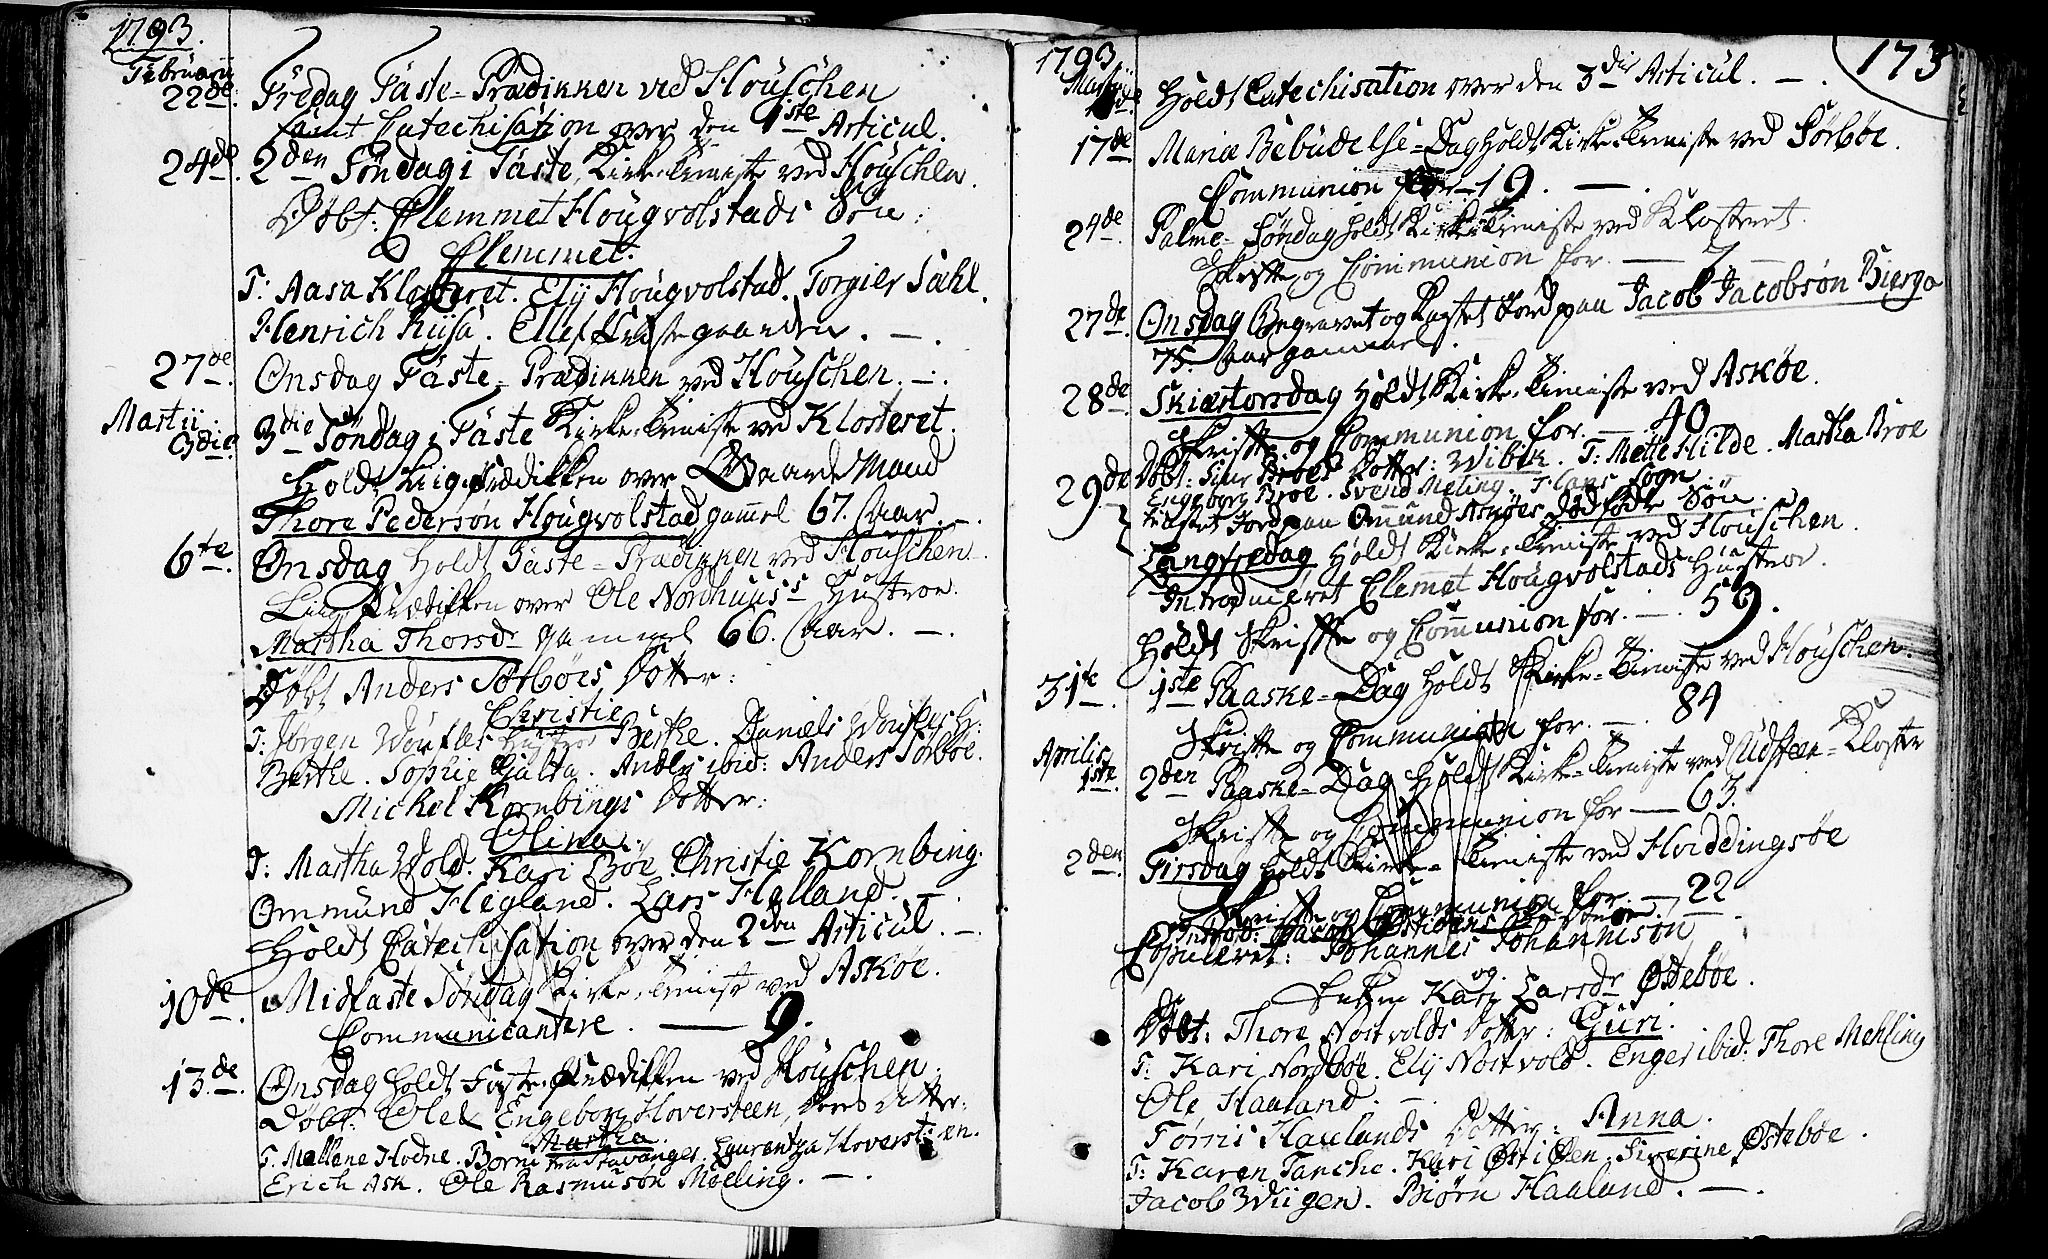 1793.
Februarii
22de. Fredag Faste-Prædikken ved Houschen
samt Catechisation over den 1ste Articul.
24de. 2den Söndag i Faste, Kirke-Tieniste ved Houschen.
Döbt: Clemmet Hougvolstads Sön:
Clemmet.
T: Aasa Klosteret. Elij Hougvolstad. Torgier Sæhl.
Henrich Rÿsa. Ellef
27de. Onsdag Faste-Prædikken ved Houschen. -.
Martii
3die 3die Söndag i Faste Kirke-Tieniste ved Klosteret.
Holdt Liig-Prædikken over Gaarde Mand
Thore Pedersøn Hougvolstad gamel 67. Aar.
6te. Onsdag holdt Faste-Prædikken ved Houschen.
Liig Prædikken over Ole Nordhuus's Hustroe.
Martha Thorsdr gammel 66. Aar. -.
Döbt Anders Sörböes Dotter:
Christie
T: Jörgen Hustroe Berthe. Daniels H:
Berthe. Sophie Galta. Anders ibid: Anders Sörböe.
Michel Kornbings Dotter:
Olina.
T: Martha Wold. Kari Böe Christie Kornbing.
Ommund Hegland. Lars Halland. -.
Holdt Catechisation over den 2den Articul. -.
10de. Midfaste Söndag Kirke-Tieniste ved Askøe.
Communicantere. — 9.
13de. Onsdag holdt Faste-Prædikken ved Houschen.
Döbt: Ole & Engeborg Hoversteen, deres Dotter:
Martha.
T. Mallene Hodne. Börre fra Stavanger. Laurentza Hoversteen.
Erich Ask. Ole Rasmusøn Mæling. -.
1793.
173
Martii
Holdt Catechisation over den 3die Articul. -.
17de Mariæ Bebudelse-Dag holdt Kirke-Tieniste ved Sörböe.
Communion for - 19. -.
24de. Palme-Söndag holdt Kirke-Tieniste ved Klosteret.
Skrifte og Communion for. — 7 —
27de. Onsdag Begravet og Kastet Jord paa Jacob Jacobsøn Bierga
75. Aar gammel.
28de. Skiærtorsdag Holdt Kirke-Tieniste ved Askøe.
Skrifte og Communion for. — 40
Döbt: Siur Broes Dotter: Wibik. T: Mette Hilde. Martha Broe
29de Engeborg Broe. Svend Meling. Hans Sogn
Kastet Jord paa Omund Asköes dödfödte Sön.
Langfredag Holdt Kirke-Tieniste ved Houschen.
Introduceret Clemet Hougvolstads Hustroe.
Holdt Skrifte og Communion for. - . 59.
31te. 1ste Paaske-Dag holdt Kirke-Tieniste ved Houschen.
Skrifte og Communion for. — . 84
Aprilis
1ste. 2den Paaske-Dag Holdt Kirke-Tieniste ved Udsteen-Kloster
Skrifte og Communion for — 63.
2den. Tirsdag holdt Kirke-Tieniste ved Hviddingsöe
Skrifte og Communion for. — 22
Introd: Jacob
Copuleret: Johannes Johannisøn
og
Enken Kari Larsdr Østeböe.
Döbt: Thore Nortvolds Dotter: Guri.
T: Kari Nordböe. Elij Nortvold. Enger ibid: Thore Mehling
Ole Haaland. -.
Törris Haalands Dotter: Anna.
T: Karen Tanche. Kari Østiøen. Siverine Østeböe.
Jacob Wiigen. Biørn Haaland. -.